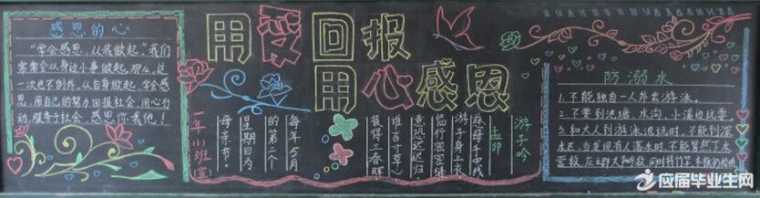 感恩的心
“学会感恩，从我做起。”我们
常常会从身边小事做起。那么，这
一次也不例外，从自身做起，学会感
恩，用自己的努力回报社会，用心行
动，服务于社会，感恩你我他！
用爱回报
用心感恩
游子吟
慈母手中线
游子身上衣
临行密密缝
意恐迟迟归
报得三春晖
每年5月
的第二个
星期日为
母亲节。
防溺水
1.不能独自一人外出游泳。
2.不要到池塘、水沟、小溪边玩耍。
3.和大人到游泳池玩时，不能到深
水区，当发现有人溺水时，不能贸然下水
营救，应立即大声呼救，同时将竹竿、木板
应届毕业生网